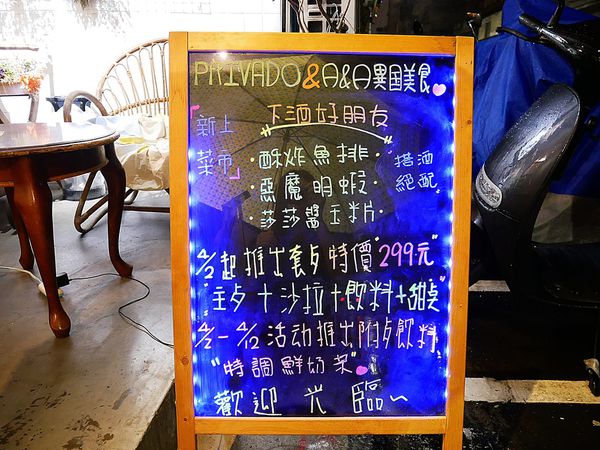 PRIVADO&A&A異国美食
下酒好朋友
「新上
菜市」
·酥炸魚排·
·惡魔明蝦·
·莎莎醬玉米片·
搭酒
絕配
4/2起推出套歺特價"299元"
"主歺+沙拉+飲料+甜臭
4/2-4/12活动推出附歺飲料
"時調鮮奶茶"
歡迎光臨~